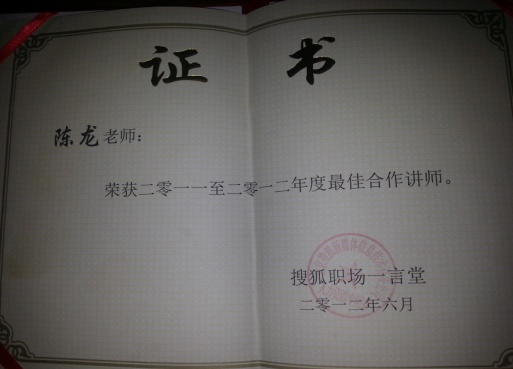 证书
陈龙老师：
荣获二零一一至二零一二年度最佳合作讲师。
搜狐职场一言堂
二零一二年六月